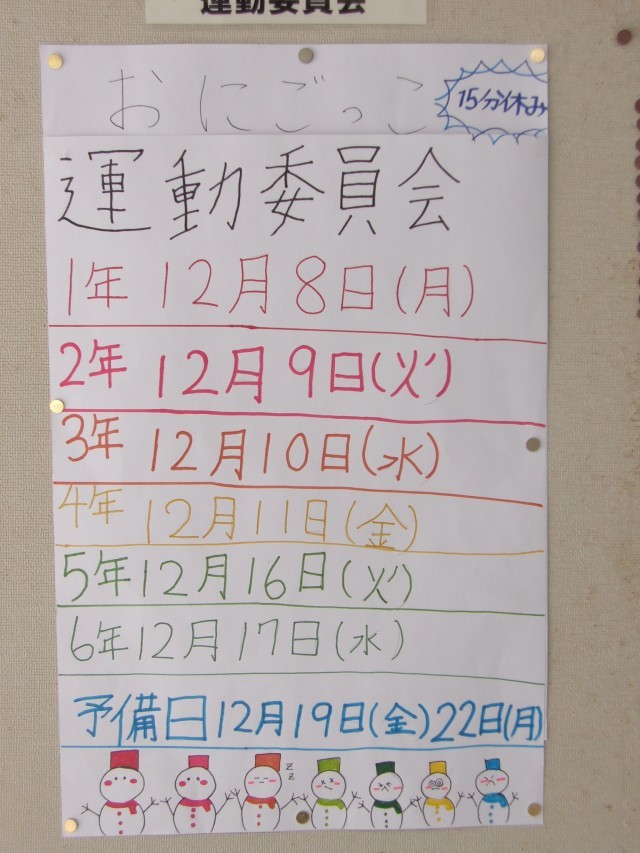 運動委員会
おにごっこ
15分休み
運動委員会
1年 12月8日(月)
2年 12月9日(火)
3年 12月10日(水)
4年 12月11日(金)
5年 12月16日(火)
6年 12月17日(水)
予備日 12月19日(金) 22日(月)
z
z